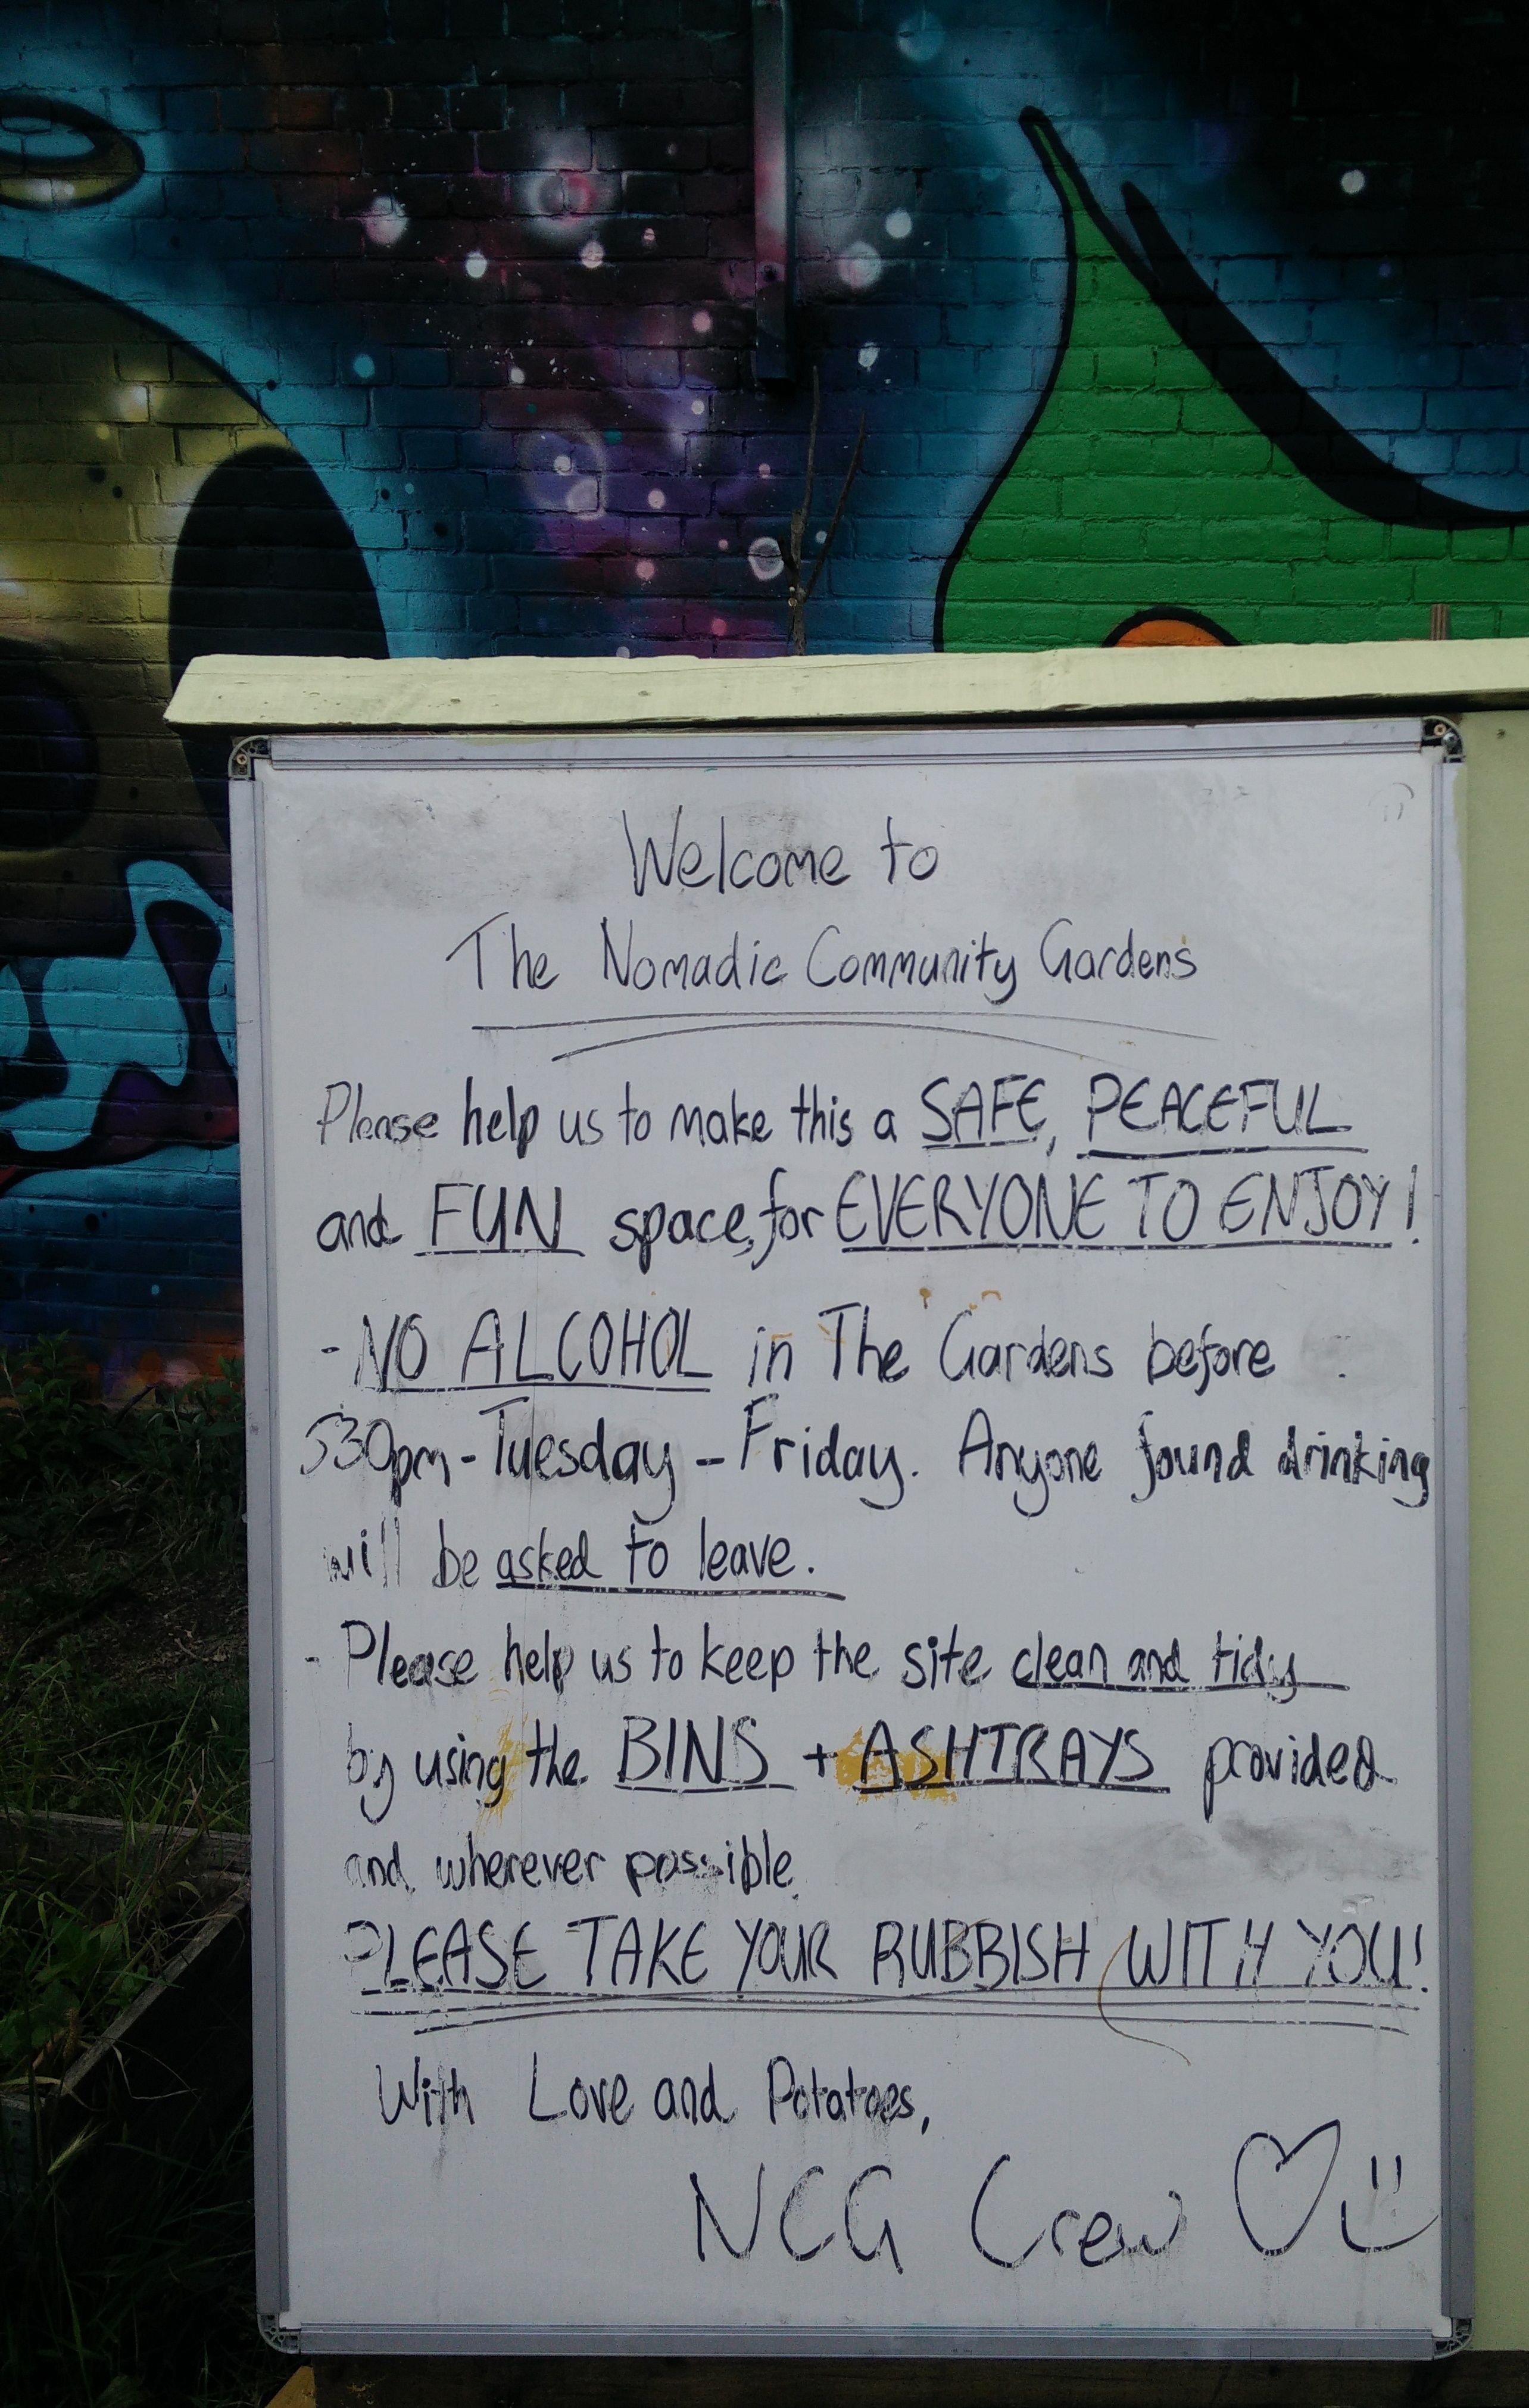 Welcome to
The Nomadic Community Gardens
Please help us to make this a SAFE, PEACEFUL
and FUN space, for EVERYONE TO ENJOY!
- NO ALCOHOL in The Gardens before
530pm - Tuesday - Friday. Anyone found drinking
will be asked to leave.
- Please help us to keep the site clean and tidy
by using the BINS + ASHTRAYS provided
and wherever possible
PLEASE TAKE YOUR RUBBISH WITH YOU!
With Love and Potatoes,
NCG Crew